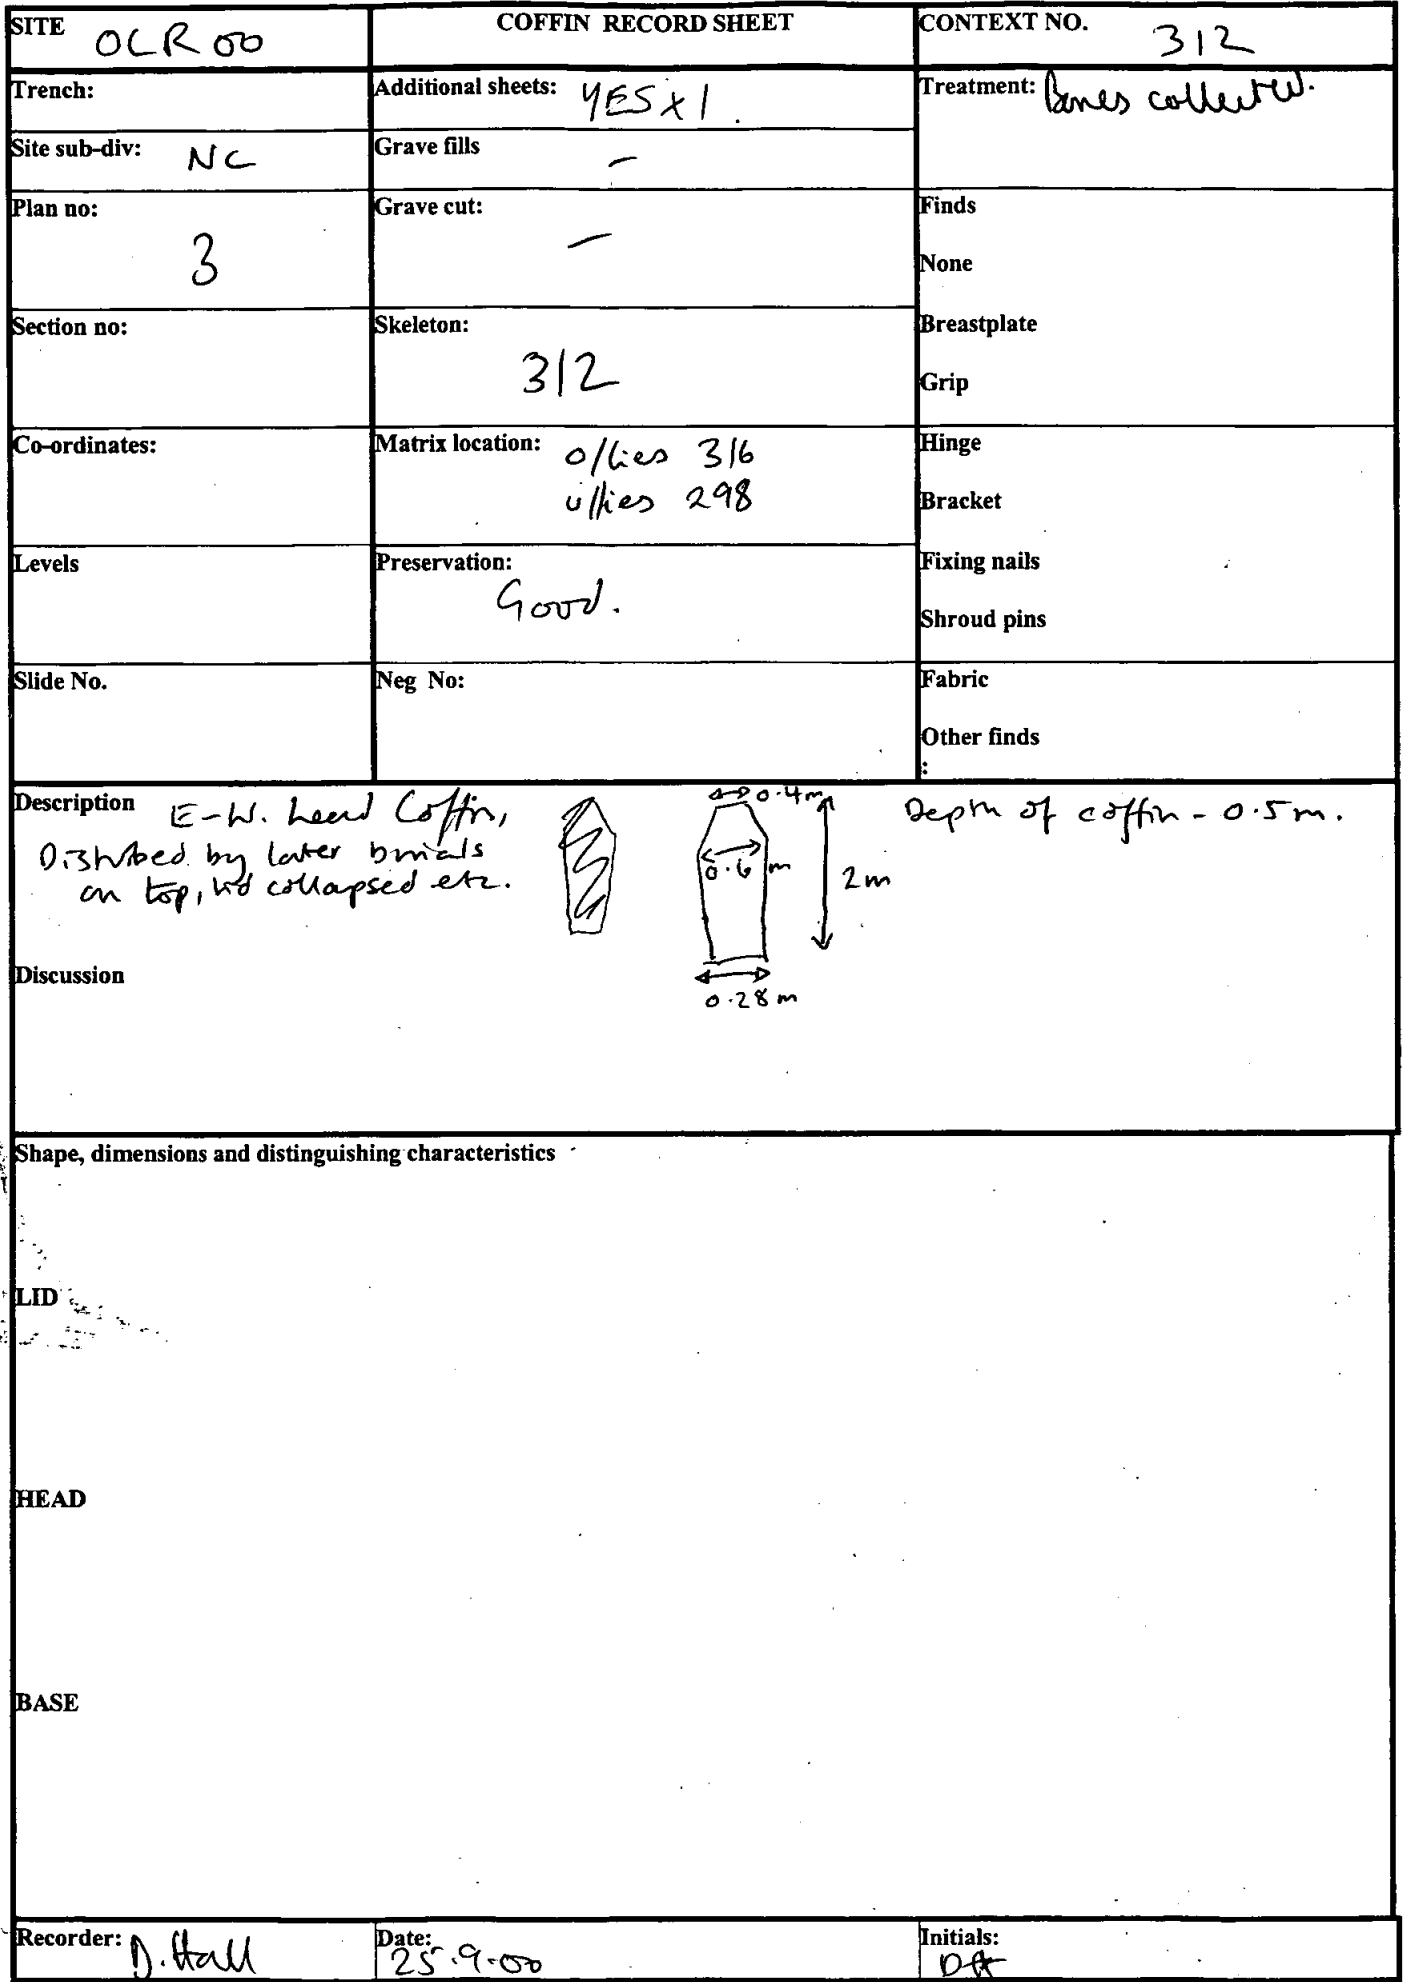 SITE OCR 00
COFFIN RECORD SHEET
CONTEXT NO. 312
Trench:
Additional sheets: YES x 1.
Treatment: Bones collected.
Site sub-div: NC
Grave fills –
Plan no: 3
Grave cut: –
Finds
None
Section no:
Skeleton: 312
Breastplate
Grip
Co-ordinates:
Matrix location: o/lies 316
u/lies 298
Hinge
Bracket
Levels
Preservation: Good.
Fixing nails
Shroud pins
Slide No.
Neg No:
Fabric
Other finds
:
Description E-W. Lead Coffin,
Disturbed by later burials
on top, lid collapsed etc.
0.4m
0.6 m
2m
0.28m
Depth of coffin - 0.5m.
Discussion
Shape, dimensions and distinguishing characteristics
LID
HEAD
BASE
Recorder: D. Hall
Date: 25.9.00
Initials: DH